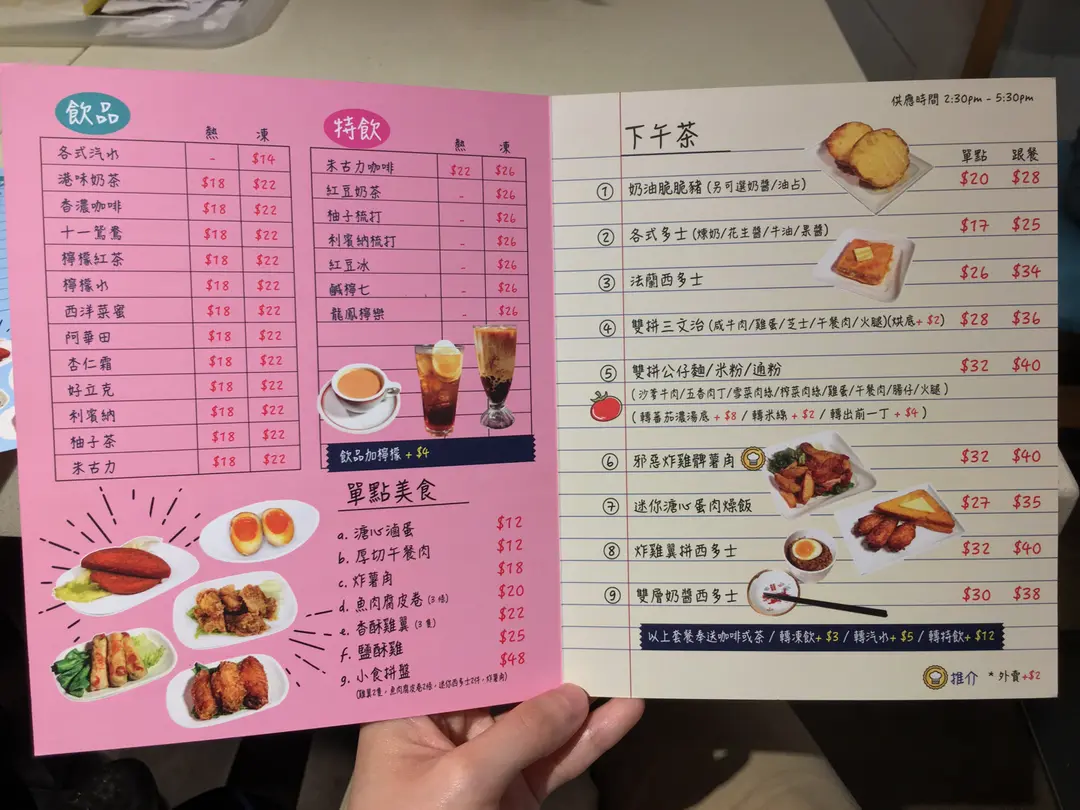 飲品
熱 凍
各式汽水 - $14
港味奶茶 $18 $22
香濃咖啡 $18 $22
十一鴛鴦 $18 $22
檸檬紅茶 $18 $22
檸檬水 $18 $22
西洋菜蜜 $18 $22
阿華田 $18 $22
杏仁霜 $18 $22
好立克 $18 $22
利賓納 $18 $22
柚子茶 $18 $22
朱古力 $18 $22
特飲
熱 凍
朱古力咖啡 $22 $26
紅豆奶茶 - $26
柚子梳打 - $26
利賓納梳打 - $26
紅豆冰 - $26
鹹檸七 - $26
龍鳳檸樂 - $26
飲品加檸檬 + $4
單點美食
a. 溏心滷蛋 $12
b. 厚切午餐肉 $12
c. 炸薯角 $18
d. 魚肉腐皮卷 (3條) $20
e. 香酥雞翼 (3隻) $22
f. 鹽酥雞 $25
g. 小食拼盤 $48
(雞翼2隻，魚肉腐皮卷2條，迷你西多士2件，炸薯角)
供應時間 2:30pm - 5:30pm
下午茶
單點 跟餐
① 奶油脆脆豬 (另可選奶醬/油占) $20 $28
② 各式多士 (煉奶/花生醬/牛油/果醬) $17 $25
③ 法蘭西多士 $26 $34
④ 雙拼三文治 (咸牛肉/雞蛋/芝士/午餐肉/火腿)(烘底+ $2) $28 $36
⑤ 雙拼公仔麵/米粉/通粉 $32 $40
(沙爹牛肉/五香肉丁/雪菜肉絲/榨菜肉絲/雞蛋/午餐肉/腸仔/火腿)
(轉蕃茄濃湯底 + $8 / 轉米線 + $2 / 轉出前一丁 + $4 )
⑥ 邪惡炸雞髀薯角 $32 $40
⑦ 迷你溏心蛋肉燥飯 $27 $35
⑧ 炸雞翼拼西多士 $32 $40
⑨ 雙層奶醬西多士 $30 $38
以上套餐奉送咖啡或茶 / 轉凍飲+ $3 / 轉汽水+ $5 / 轉特飲+ $12
推介 *外賣+$2